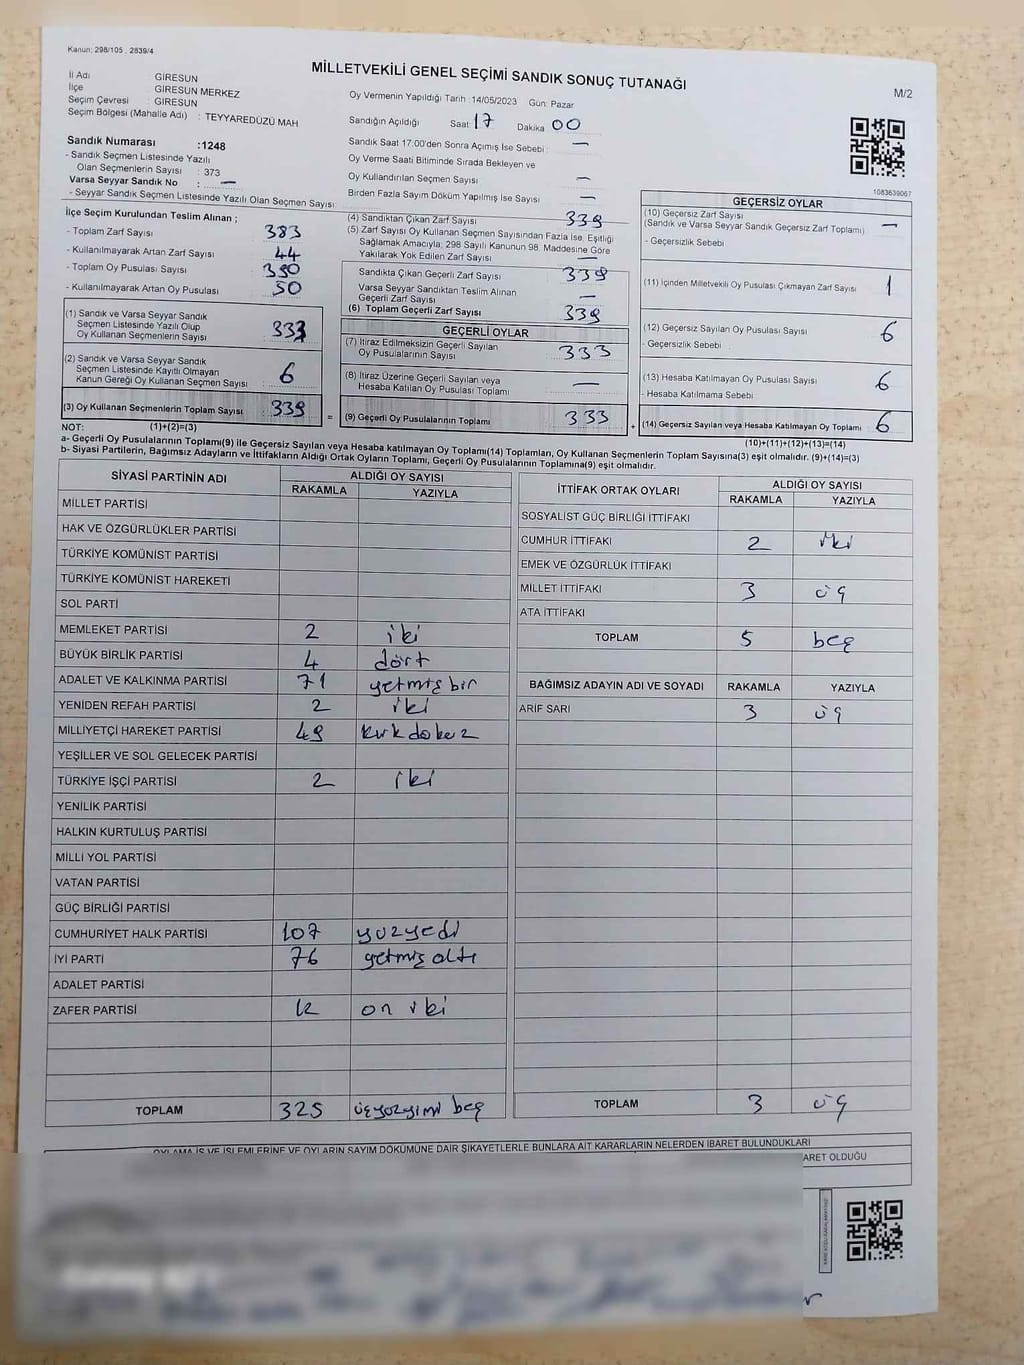 Kanun: 298/105 , 2839/4
MİLLETVEKİLİ GENEL SEÇİMİ SANDIK SONUÇ TUTANAĞI
M/2
İl Adı GİRESUN
İlçe GİRESUN MERKEZ
Seçim Çevresi : GİRESUN
Seçim Bölgesi (Mahalle Adı) : TEYYAREDÜZÜ MAH
Sandık Numarası :1248
- Sandık Seçmen Listesinde Yazılı
Olan Seçmenlerin Sayısı : 373
Varsa Seyyar Sandık No : —
- Seyyar Sandık Seçmen Listesinde Yazılı Olan Seçmen Sayısı:
Oy Vermenin Yapıldığı Tarih :14/05/2023 Gün: Pazar
Sandığın Açıldığı Saat 17 Dakika 00
Sandık Saat 17.00'den Sonra Açımış İse Sebebi : —
Oy Verme Saati Bitiminde Sırada Bekleyen ve
Oy Kullandırılan Seçmen Sayısı —
Birden Fazla Sayım Döküm Yapılmış İse Sayısı —
1083639067
İlçe Seçim Kurulundan Teslim Alınan ;
- Toplam Zarf Sayısı 383
- Kullanılmayarak Artan Zarf Sayısı 44
- Toplam Oy Pusulası Sayısı 390
- Kullanılmayarak Artan Oy Pusulası 50
(1) Sandık ve Varsa Seyyar Sandık
Seçmen Listesinde Yazılı Olup
Oy Kullanan Seçmenlerin Sayısı 333
(2) Sandık ve Varsa Seyyar Sandık
Seçmen Listesinde Kayıtlı Olmayan
Kanun Gereği Oy Kullanan Seçmen Sayısı 6
(3) Oy Kullanan Seçmenlerin Toplam Sayısı 339
(4) Sandıktan Çıkan Zarf Sayısı 339
(5) Zarf Sayısı Oy Kullanan Seçmen Sayısından Fazla İse, Eşitliği
Sağlamak Amacıyla; 298 Sayılı Kanunun 98. Maddesine Göre
Yakılarak Yok Edilen Zarf Sayısı —
Sandıkta Çıkan Geçerli Zarf Sayısı 339
Varsa Seyyar Sandıktan Teslim Alınan
Geçerli Zarf Sayısı —
(6) Toplam Geçerli Zarf Sayısı 339
GEÇERLİ OYLAR
(7) İtiraz Edilmeksizin Geçerli Sayılan
Oy Pusulalarının Sayısı 333
(8) İtiraz Üzerine Geçerli Sayılan veya
Hesaba Katılan Oy Pusulası Toplamı —
= (9) Geçerli Oy Pusulalarının Toplamı 333
GEÇERSİZ OYLAR
(10) Geçersiz Zarf Sayısı
(Sandık ve Varsa Seyyar Sandık Geçersiz Zarf Toplamı) —
- Geçersizlik Sebebi
(11) İçinden Milletvekili Oy Pusulası Çıkmayan Zarf Sayısı 1
(12) Geçersiz Sayılan Oy Pusulası Sayısı 6
- Geçersizlik Sebebi
(13) Hesaba Katılmayan Oy Pusulası Sayısı 6
- Hesaba Katılmama Sebebi
+ (14) Geçersiz Sayılan veya Hesaba Katılmayan Oy Toplamı 6
NOT: (1)+(2)=(3)
(10)+(11)+(12)+(13)=(14)
a- Geçerli Oy Pusulalarının Toplamı(9) ile Geçersiz Sayılan veya Hesaba katılmayan Oy Toplamı(14) Toplamları, Oy Kullanan Seçmenlerin Toplam Sayısına(3) eşit olmalıdır. (9)+(14)=(3)
b- Siyasi Partilerin, Bağımsız Adayların ve İttifakların Aldığı Ortak Oyların Toplamı, Geçerli Oy Pusulalarının Toplamına(9) eşit olmalıdır.
SİYASİ PARTİNİN ADI ALDIĞI OY SAYISI
RAKAMLA YAZIYLA
MİLLET PARTİSİ
HAK VE ÖZGÜRLÜKLER PARTİSİ
TÜRKİYE KOMÜNİST PARTİSİ
TÜRKİYE KOMÜNİST HAREKETİ
SOL PARTİ
MEMLEKET PARTİSİ 2 iki
BÜYÜK BİRLİK PARTİSİ 4 dört
ADALET VE KALKINMA PARTİSİ 71 yetmiş bir
YENİDEN REFAH PARTİSİ 2 iki
MİLLİYETÇİ HAREKET PARTİSİ 49 kırk dokuz
YEŞİLLER VE SOL GELECEK PARTİSİ
TÜRKİYE İŞÇİ PARTİSİ 2 iki
YENİLİK PARTİSİ
HALKIN KURTULUŞ PARTİSİ
MİLLİ YOL PARTİSİ
VATAN PARTİSİ
GÜÇ BİRLİĞİ PARTİSİ
CUMHURİYET HALK PARTİSİ 107 yüzyedi
İYİ PARTİ 76 yetmiş altı
ADALET PARTİSİ
ZAFER PARTİSİ 12 on iki
TOPLAM 325 üçyüzyirmi beş
İTTİFAK ORTAK OYLARI ALDIĞI OY SAYISI
RAKAMLA YAZIYLA
SOSYALİST GÜÇ BİRLİĞİ İTTİFAKI
CUMHUR İTTİFAKI 2 iki
EMEK VE ÖZGÜRLÜK İTTİFAKI
MİLLET İTTİFAKI 3 üç
ATA İTTİFAKI
TOPLAM 5 beş
BAĞIMSIZ ADAYIN ADI VE SOYADI RAKAMLA YAZIYLA
ARİF SARI 3 üç
TOPLAM 3 üç
OYLAMA İŞ VE İŞLEMLERİNE VE OYLARIN SAYIM DÖKÜMÜNE DAİR ŞİKAYETLERLE BUNLARA AİT KARARLARIN NELERDEN İBARET BULUNDUKLARI
ARET OLDUĞU